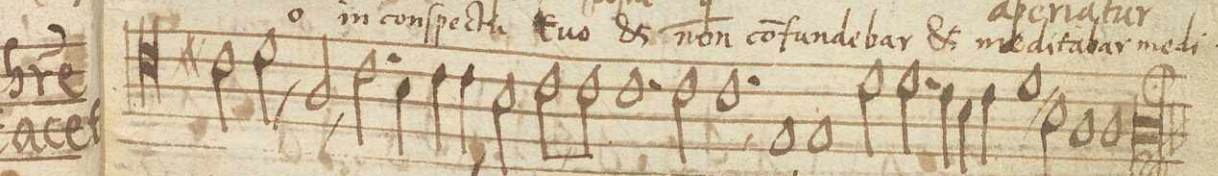 aperiatur
o in conspectu tuo & nōn cōfundebar & meditabar medi
hrē
tacet